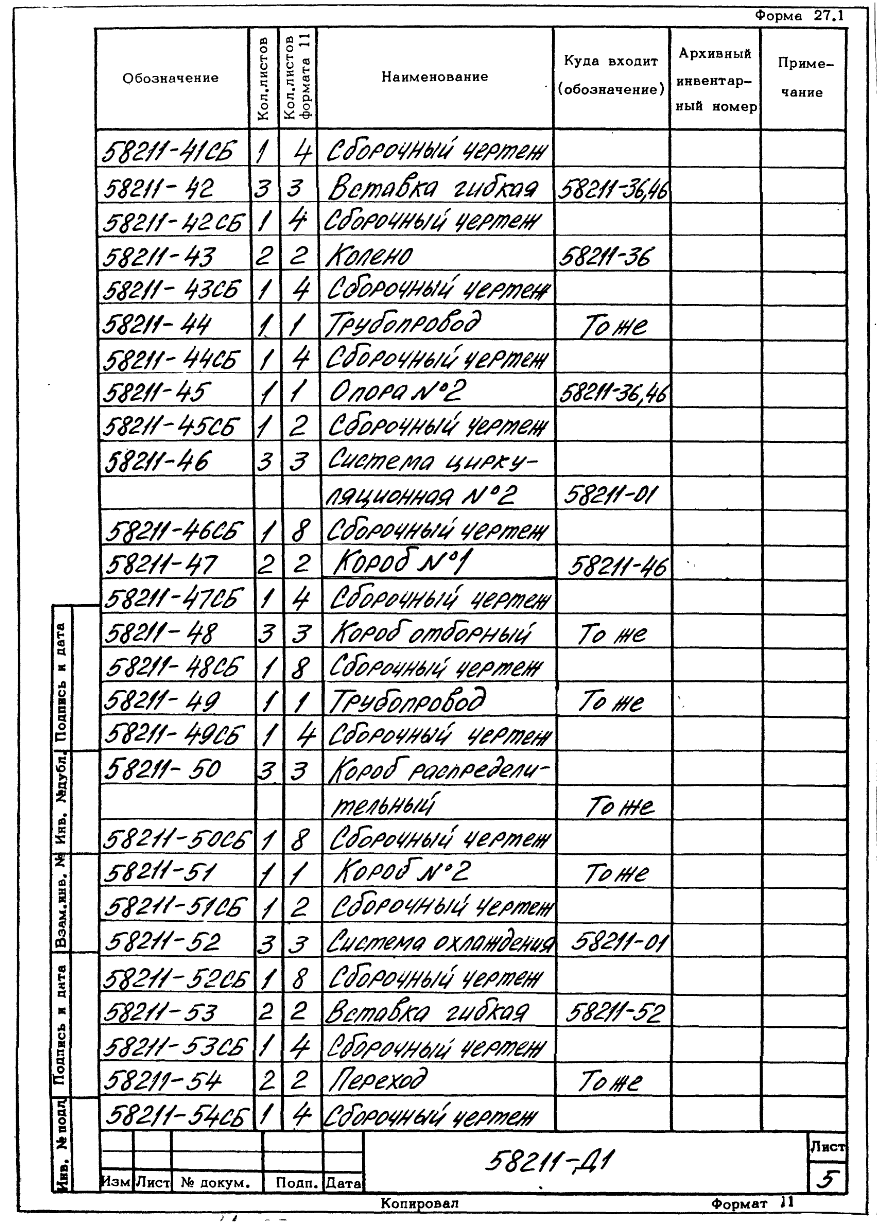 Форма 27.1
Обозначение Кол.листов Кол.листов формата 11 Наименование Куда входит (обозначение) Архивный инвентар- ный номер Приме- чание
58211-41СБ 1 4 Сборочный чертеж
58211-42 3 3 Вставка гибкая 58211-36,46
58211-42СБ 1 4 Сборочный чертеж
58211-43 2 2 Колено 58211-36
58211-43СБ 1 4 Сборочный чертеж
58211-44 1 1 Трубопровод То же
58211-44СБ 1 4 Сборочный чертеж
58211-45 1 1 Опора №2 58211-36,46
58211-45СБ 1 2 Сборочный чертеж
58211-46 3 3 Система цирку-
ляционная №2 58211-01
58211-46СБ 1 8 Сборочный чертеж
58211-47 2 2 Короб №1 58211-46
58211-47СБ 1 4 Сборочный чертеж
58211-48 3 3 Короб отборный То же
58211-48СБ 1 8 Сборочный чертеж
58211-49 1 1 Трубопровод То же
58211-49СБ 1 4 Сборочный чертеж
58211-50 3 3 Короб распредели-
тельный То же
58211-50СБ 1 8 Сборочный чертеж
58211-51 1 1 Короб №2 То же
58211-51СБ 1 2 Сборочный чертеж
58211-52 3 3 Система охлаждения 58211-01
58211-52СБ 1 8 Сборочный чертеж
58211-53 2 2 Вставка гибкая 58211-52
58211-53СБ 1 4 Сборочный чертеж
58211-54 2 2 Переход То же
58211-54СБ 1 4 Сборочный чертеж
Подпись и дата
Инв. №дубл.
Взам.инв. №
Подпись и дата
Инв. № подл
Изм Лист № докум. Подп. Дата
58211-Д1
Лист
5
Копировал Формат 11